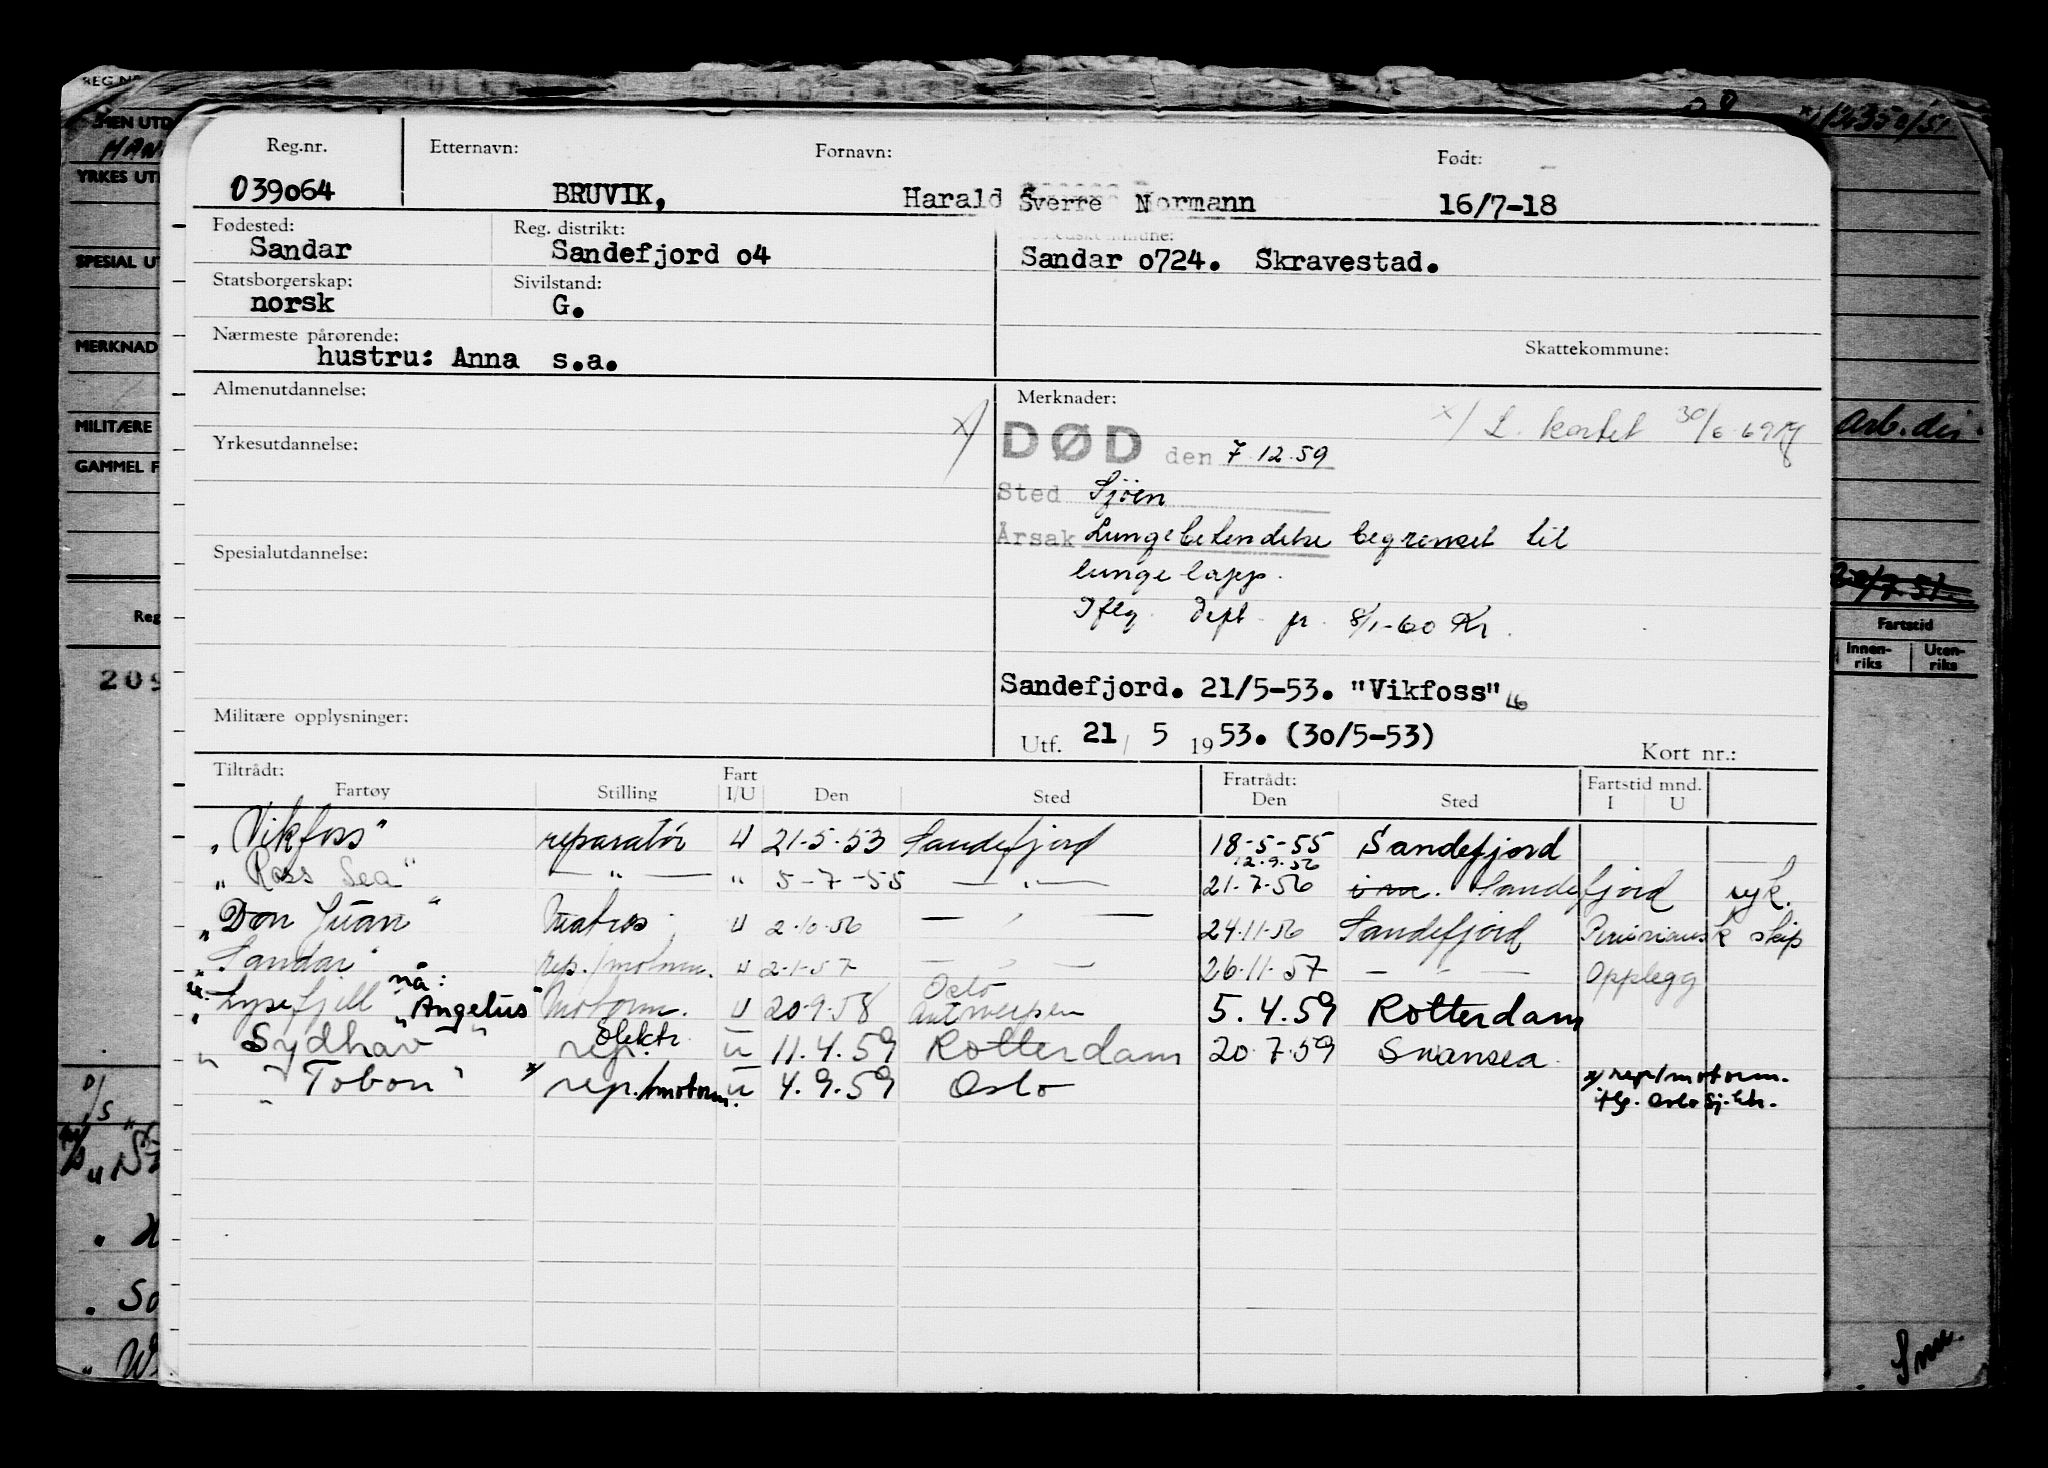 Reg.nr. Etternavn: Fornavn: Født:
039064 BRUVIK, Harald Sverre Normann 16/7-18
Fødested: Reg. distrikt:
Sandar Sandefjord o4 Sandar o724. Skravestad.
Statsborgerskap: Sivilstand:
norsk G.
Nærmeste pårørende: Skattekommune:
hustru: Anna s.a.
Almenutdannelse: Merknader:
x/ L. kortet 30/6-69
x/ DØD den 7.12.59
Yrkesutdannelse:
Sted Sjøen
Årsak Lungebetendelse begrenset til
Spesialutdannelse:
lungelapp.
Iflg. Dept. pr. 8/1-60 Kr.
Sandefjord. 21/5-53. "Vikfoss"
Militære opplysninger:
Utf. 21/ 5 1953. (30/5-53)
Kort nr.:
Tiltrådt: Fart Fratrådt: Fartstid mnd.
Fartøy Stilling I/U Den Sted Den Sted I U
"Vikfoss" reparatør U 21-5-53 Sandefjord 18-5-55 Sandefjord
12.9.56
"Ross Sea" — " — " 5-7-55 — " — 21-7-56 Sandefjord syk.
"Don Juan" Matros U 2-10-56 — " — 24-11-56 Sandefjord Peruviansk skip
"Sandar" rep./motorm. U 2-1-57 — " — 26-11-57 — " — Opplegg
nå: Oslo
"Lysefjell "Angelus" Motorm. U 20-9-58 Antwerpen 5.4.59 Rotterdam
elektr.
"Sydhav" rep. U 11.4.59 Rotterdam 20.7.59 Swansea
"Tobon" x/ rep./motorm. U 4.9.59 Oslo x/ rep/motorm.
iflg. Oslo Sj.ktr.
REG.NR.
MERKNAD
MILITÆRE
GAMMEL F
Reg
209
arb.dir.
Fartstid
Innen-
riks
Uten-
riks